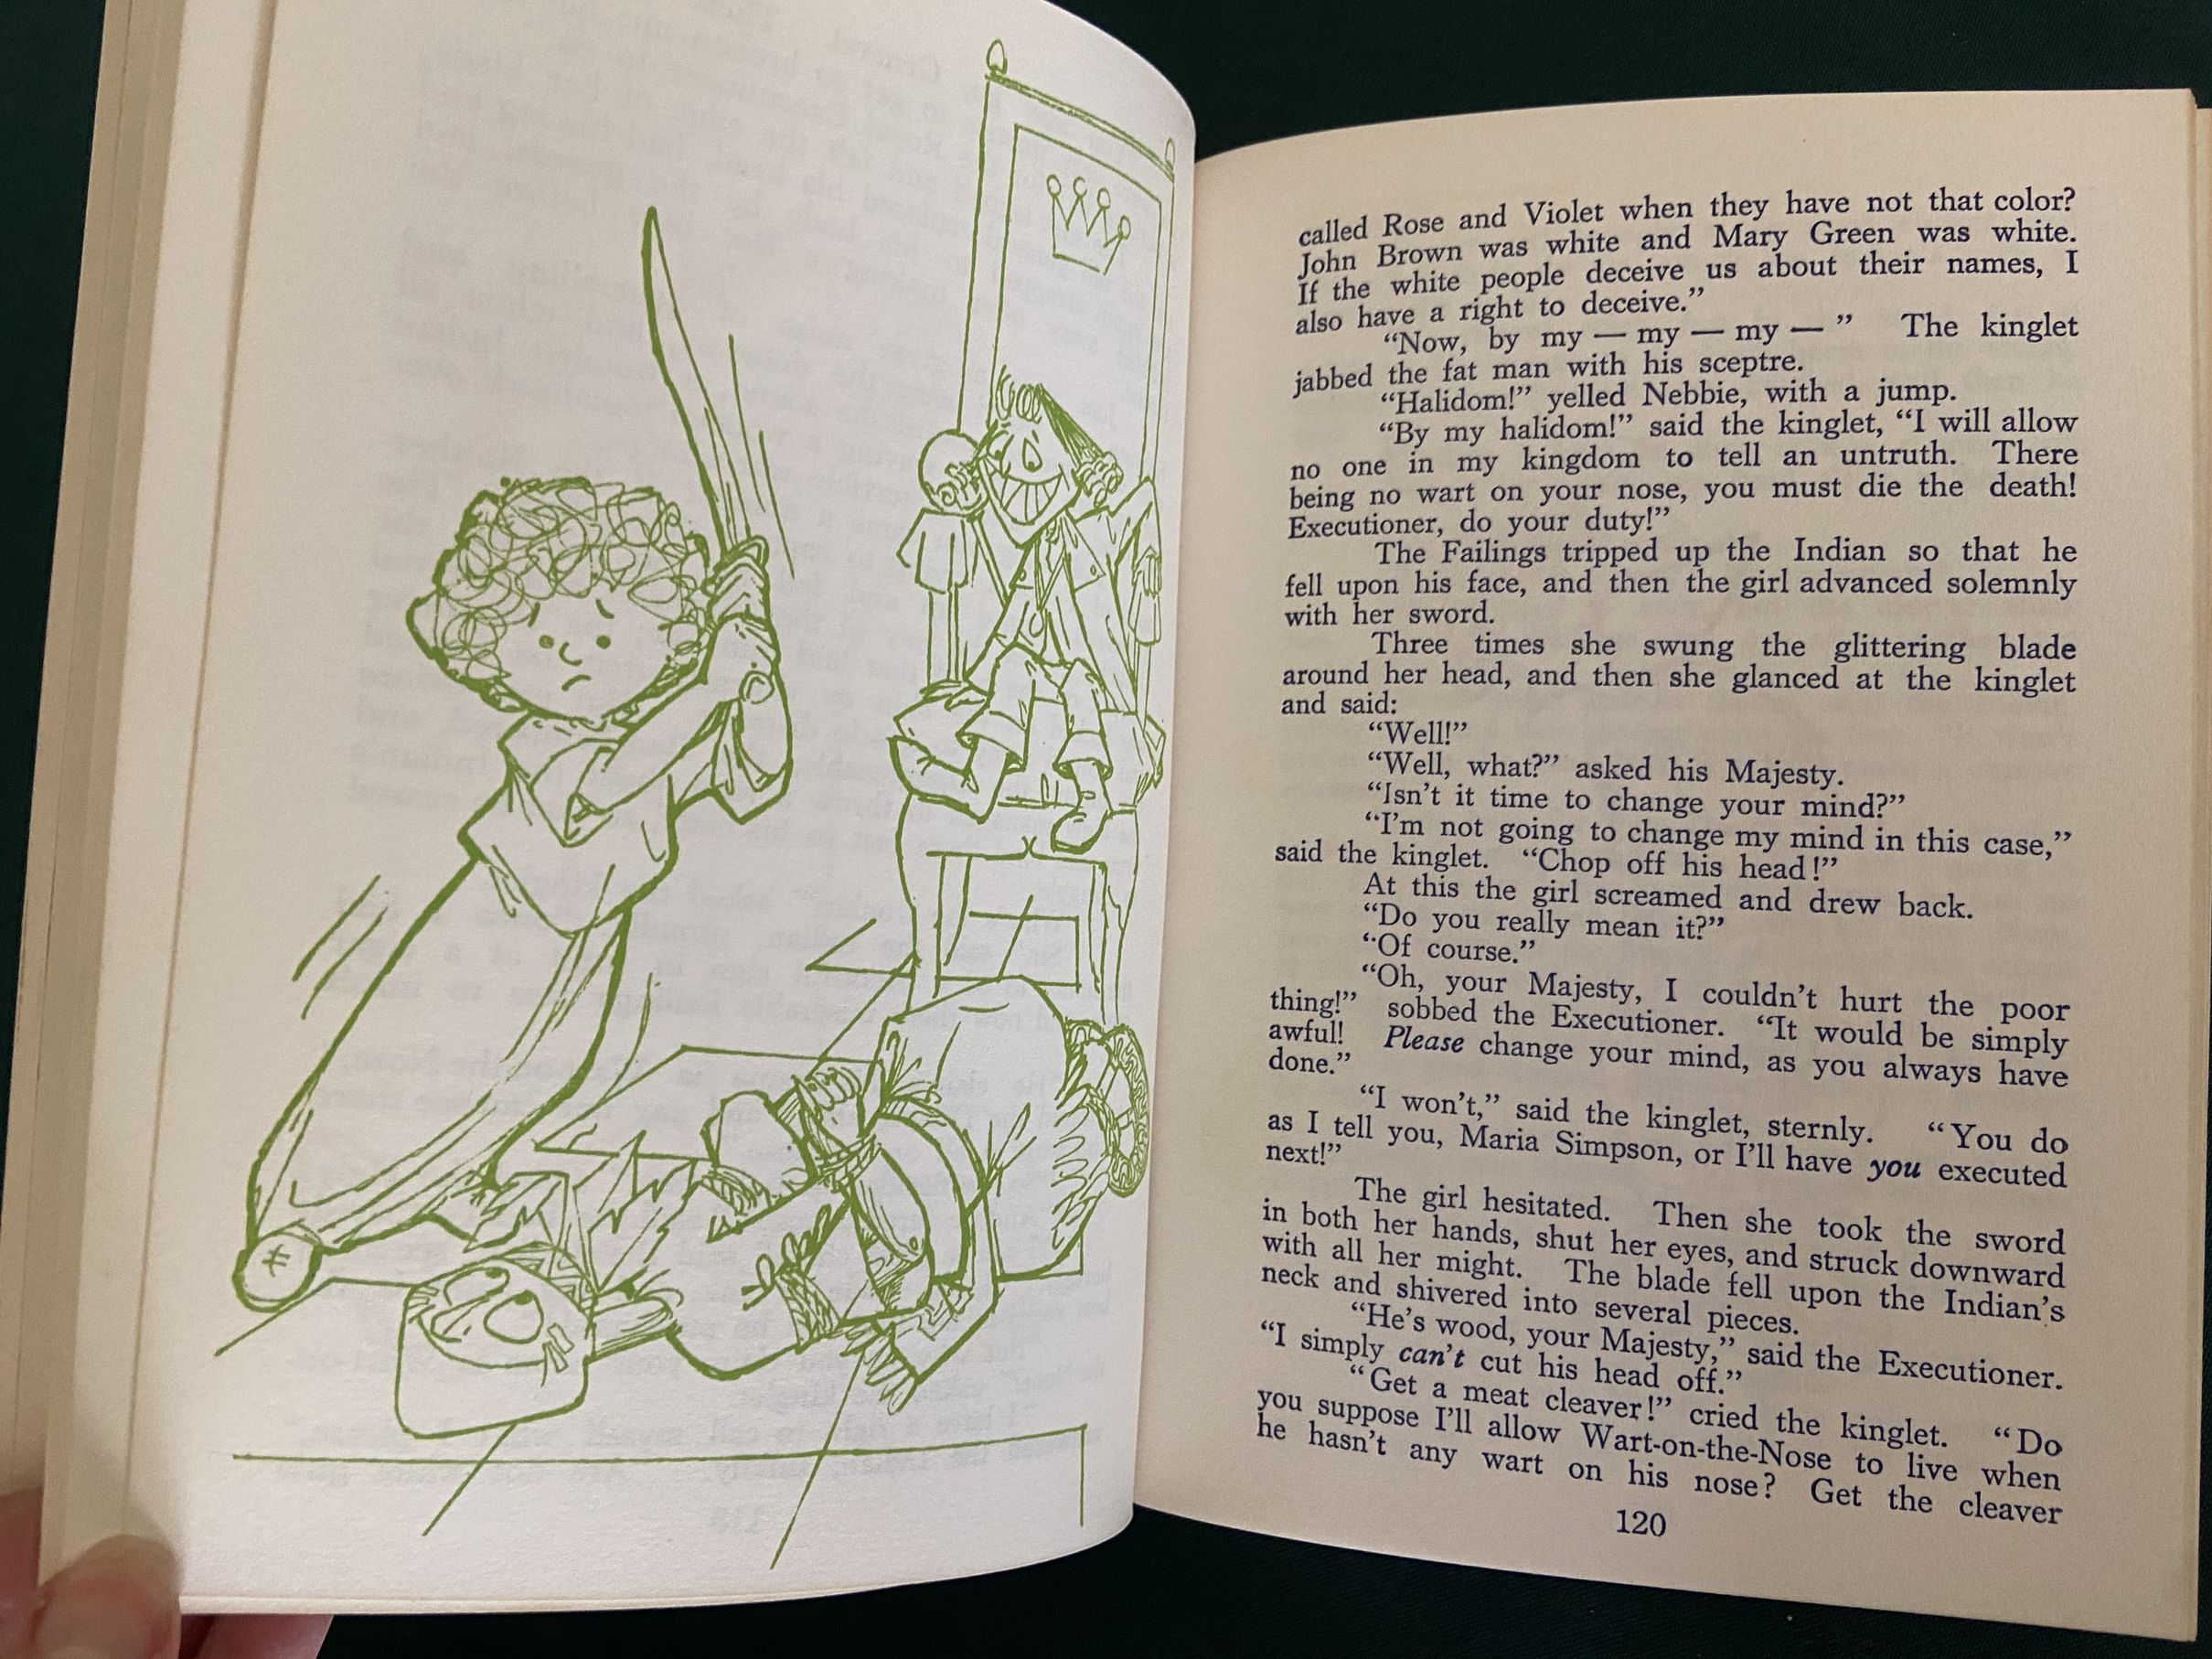 called Rose and Violet when they have not that color?
John Brown was white and Mary Green was white.
If the white people deceive us about their names, I
also have a right to deceive.”
“Now, by my — my — my — ” The kinglet
jabbed the fat man with his sceptre.
“Halidom!” yelled Nebbie, with a jump.
“By my halidom!” said the kinglet, “I will allow
no one in my kingdom to tell an untruth. There
being no wart on your nose, you must die the death!
Executioner, do your duty!”
The Failings tripped up the Indian so that he
fell upon his face, and then the girl advanced solemnly
with her sword.
Three times she swung the glittering blade
around her head, and then she glanced at the kinglet
and said:
“Well!”
“Well, what?” asked his Majesty.
“Isn’t it time to change your mind?”
“I’m not going to change my mind in this case,”
said the kinglet. “Chop off his head!”
At this the girl screamed and drew back.
“Do you really mean it?”
“Of course.”
“Oh, your Majesty, I couldn’t hurt the poor
thing!” sobbed the Executioner. “It would be simply
awful! Please change your mind, as you always have
done.”
“I won’t,” said the kinglet, sternly. “You do
as I tell you, Maria Simpson, or I’ll have you executed
next!”
The girl hesitated. Then she took the sword
in both her hands, shut her eyes, and struck downward
with all her might. The blade fell upon the Indian’s
neck and shivered into several pieces.
“He’s wood, your Majesty,” said the Executioner.
“I simply can’t cut his head off.”
“Get a meat cleaver!” cried the kinglet. “Do
you suppose I’ll allow Wart-on-the-Nose to live when
he hasn’t any wart on his nose? Get the cleaver
120